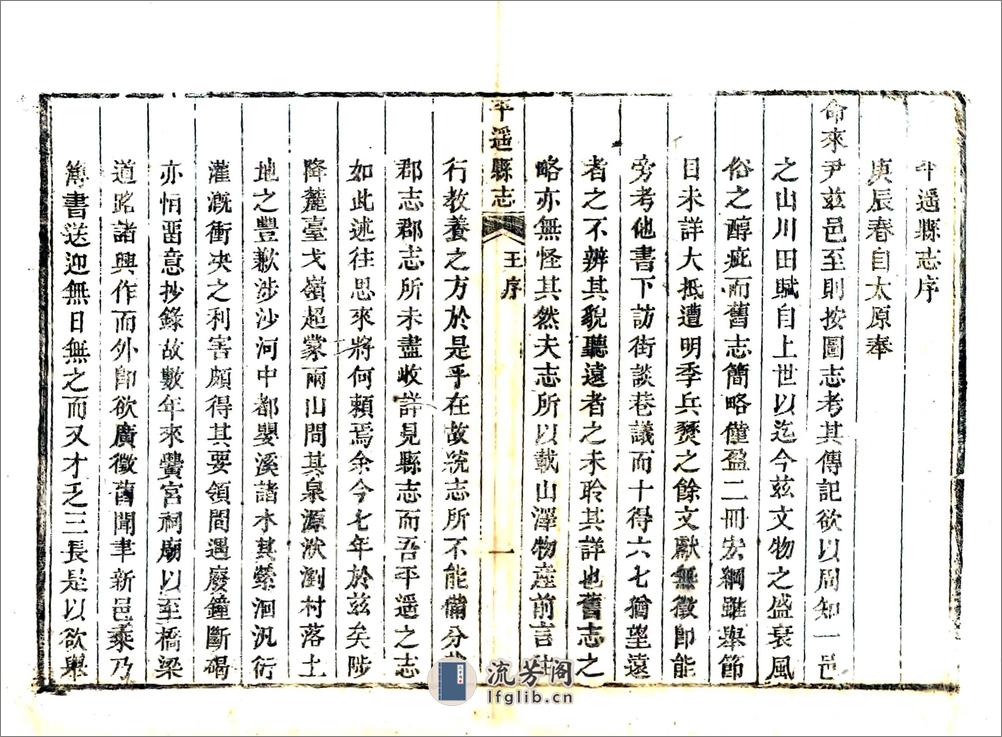 平遥縣志序
庚辰春自太原奉
命來尹兹邑至則按圖志考其傳記欲以周知一邑
之山川田賦自上世以迄今兹文物之盛衰風
俗之醇疵而舊志簡略僅盈二冊宏綱雖舉節
目未詳大抵遭明季兵燹之餘文獻無徵即能
旁考他書下訪街談巷議而十得六七猶望遠
者之不辨其貌聽遠者之未聆其詳也舊志之
略亦無怪其然夫志所以載山澤物產前言往
平遥縣志
王序
一
行教養之方於是乎在故統志所不能備分
郡志郡志所未盡收詳見縣志而吾平遥之志
如此述往思來將何賴焉余今七年於兹矣陟
降麓臺戈嶺超蒙兩山間其泉源洑瀏村落土
地之豐歉涉沙河中都嬰溪諸水其縈洄汎衍
灌溉衝决之利害頗得其要領間遇廢鐘斷碣
亦悁留意抄錄故數年來黌宮祠廟以至橋梁
道路諸興作而外即欲廣徵舊聞聿新邑乘乃
簿書送迎無日無之而又才乏三長是以欲舉
流芳阁
lfglib.cn